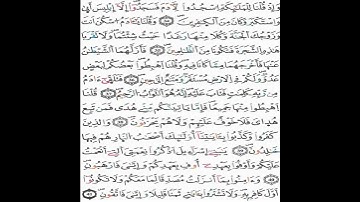 وَإِذْ قُلْنَا لِلْمَلَٰٓئِكَةِ ٱسْجُدُوا۟ لِـَٔادَمَ فَسَجَدُوٓا۟ إِلَّآ إِبْلِيسَ أَبَىٰ
وَٱسْتَكْبَرَ وَكَانَ مِنَ ٱلْكَٰفِرِينَ ٣٤ وَقُلْنَا يَٰٓـَٔادَمُ ٱسْكُنْ أَنتَ
وَزَوْجُكَ ٱلْجَنَّةَ وَكُلَا مِنْهَا رَغَدًا حَيْثُ شِئْتُمَا وَلَا تَقْرَبَا
هَٰذِهِ ٱلشَّجَرَةَ فَتَكُونَا مِنَ ٱلظَّٰلِمِينَ ٣٥ فَأَزَلَّهُمَا ٱلشَّيْطَٰنُ
عَنْهَا فَأَخْرَجَهُمَا مِمَّا كَانَا فِيهِ وَقُلْنَا ٱهْبِطُوا۟ بَعْضُكُمْ لِبَعْضٍ
عَدُوٌّ وَلَكُمْ فِى ٱلْأَرْضِ مُسْتَقَرٌّ وَمَتَٰعٌ إِلَىٰ حِينٍ ٣٦ فَتَلَقَّىٰٓ ءَادَمُ
مِن رَّبِّهِۦ كَلِمَٰتٍ فَتَابَ عَلَيْهِ إِنَّهُۥ هُوَ ٱلتَّوَّابُ ٱلرَّحِيمُ ٣٧ قُلْنَا
ٱهْبِطُوا۟ مِنْهَا جَمِيعًا فَإِمَّا يَأْتِيَنَّكُم مِّنِّى هُدًى فَمَن تَبِعَ
هُدَاىَ فَلَا خَوْفٌ عَلَيْهِمْ وَلَا هُمْ يَحْزَنُونَ ٣٨ وَٱلَّذِينَ
كَفَرُوا۟ وَكَذَّبُوا۟ بِـَٔايَٰتِنَآ أُو۟لَٰٓئِكَ أَصْحَٰبُ ٱلنَّارِ هُمْ فِيهَا
خَٰلِدُونَ ٣٩ يَٰبَنِىٓ إِسْرَٰٓءِيلَ ٱذْكُرُوا۟ نِعْمَتِىَ ٱلَّتِىٓ أَنْعَمْتُ
عَلَيْكُمْ وَأَوْفُوا۟ بِعَهْدِىٓ أُوفِ بِعَهْدِكُمْ وَإِيَّٰىَ فَٱرْهَبُونِ
٤٠ وَءَامِنُوا۟ بِمَآ أَنزَلْتُ مُصَدِّقًا لِّمَا مَعَكُمْ وَلَا تَكُونُوٓا۟
أَوَّلَ كَافِرٍۭ بِهِۦ وَلَا تَشْتَرُوا۟ بِـَٔايَٰتِى ثَمَنًا قَلِيلًا وَإِيَّٰىَ فَٱتَّقُونِ ٤١